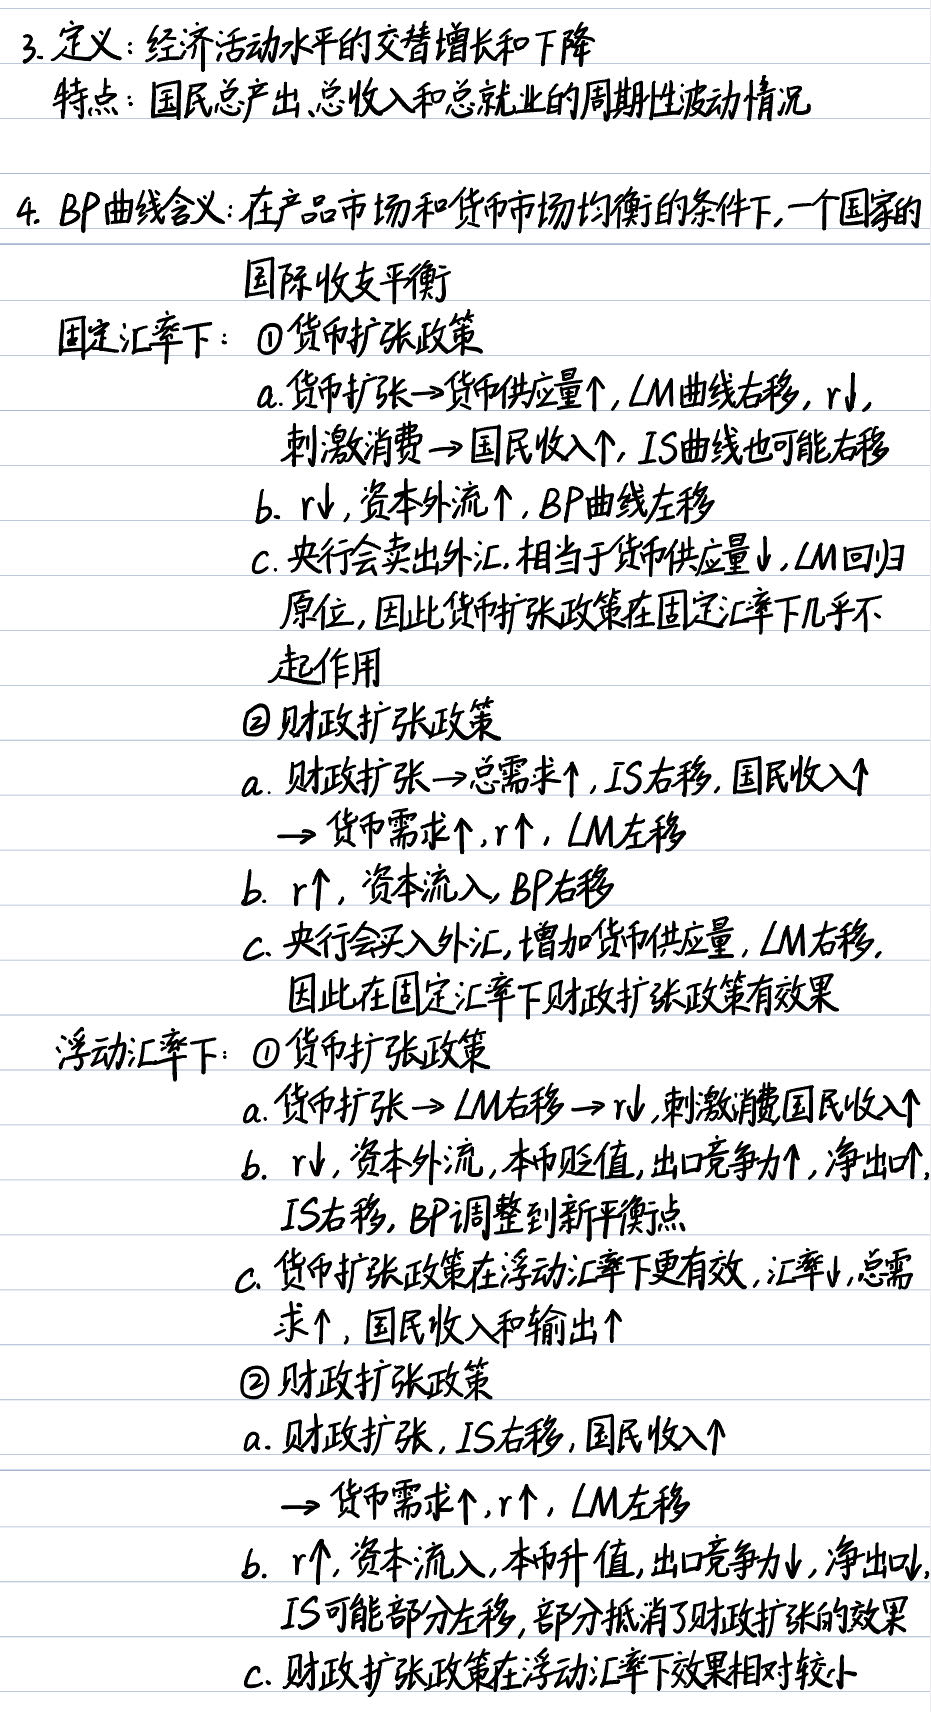 3. 定义：经济活动水平的交替增长和下降
特点：国民总产出、总收入和总就业的周期性波动情况
4. BP曲线含义：在产品市场和货币市场均衡的条件下，一个国家的
国际收支平衡
固定汇率下：①货币扩张政策
a.货币扩张→货币供应量↑，LM曲线右移，r↓，
刺激消费→国民收入↑，IS曲线也可能右移
b. r↓，资本外流↑，BP曲线左移
c. 央行会卖出外汇，相当于货币供应量↓，LM回归
原位，因此货币扩张政策在固定汇率下几乎不
起作用
②财政扩张政策
a. 财政扩张→总需求↑，IS右移，国民收入↑
→货币需求↑，r↑，LM左移
b. r↑，资本流入，BP右移
c. 央行会买入外汇，增加货币供应量，LM右移，
因此在固定汇率下财政扩张政策有效果
浮动汇率下：①货币扩张政策
a.货币扩张→LM右移→r↓，刺激消费，国民收入↑
b. r↓，资本外流，本币贬值，出口竞争力↑，净出口↑，
IS右移，BP调整到新平衡点
c. 货币扩张政策在浮动汇率下更有效，汇率↓，总需
求↑，国民收入和输出↑
②财政扩张政策
a. 财政扩张，IS右移，国民收入↑
→货币需求↑，r↑，LM左移
b. r↑，资本流入，本币升值，出口竞争力↓，净出口↓，
IS可能部分左移，部分抵消了财政扩张的效果
c. 财政扩张政策在浮动汇率下效果相对较小